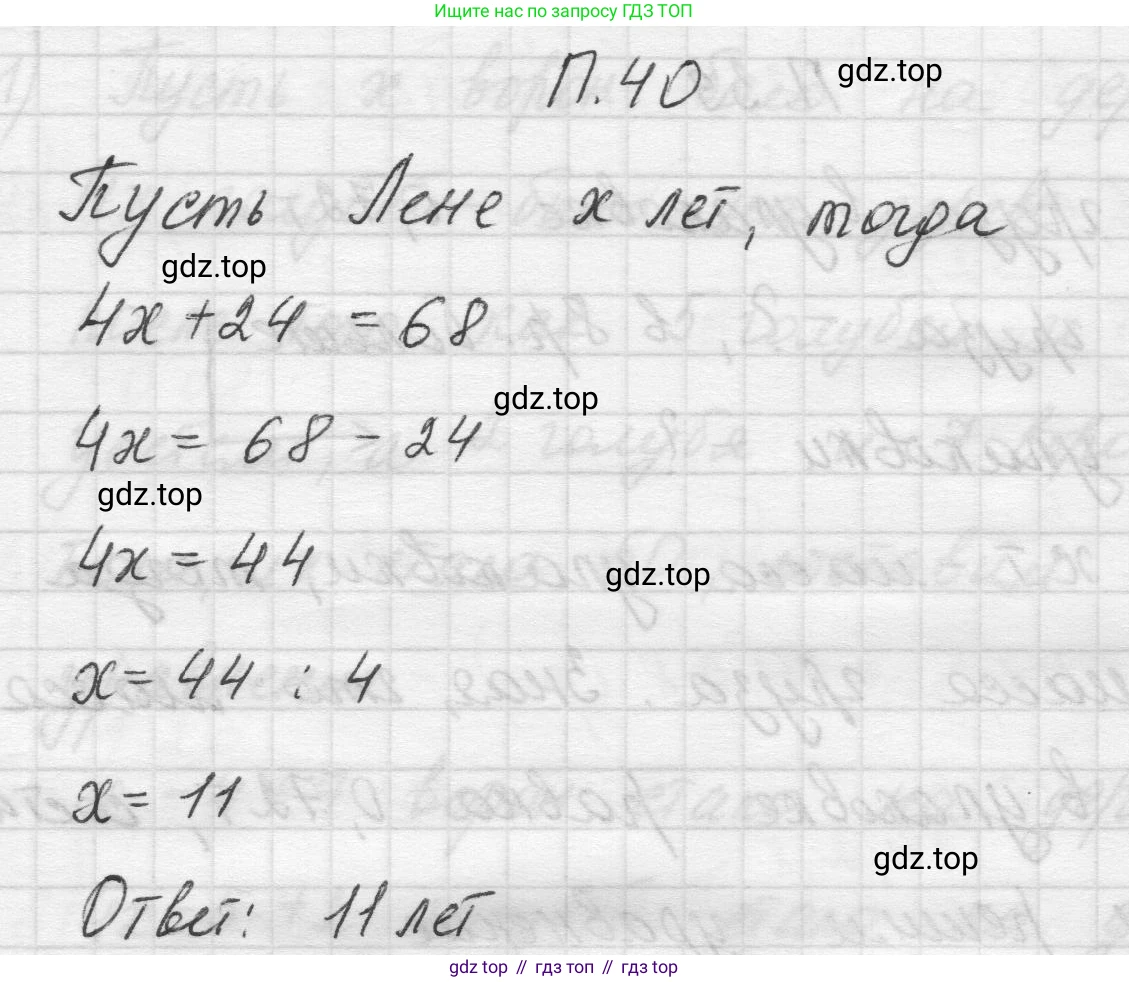 Ищите нас по запросу ГДЗ ТОП
П.40
gdz.top
Пусть Лене x лет, тогда
gdz.top
4x + 24 = 68
gdz.top
4x = 68 - 24
gdz.top
4x = 44
gdz.top
x = 44 : 4
x = 11
gdz.top
Ответ: 11 лет
gdz top // гдз топ // гдз top